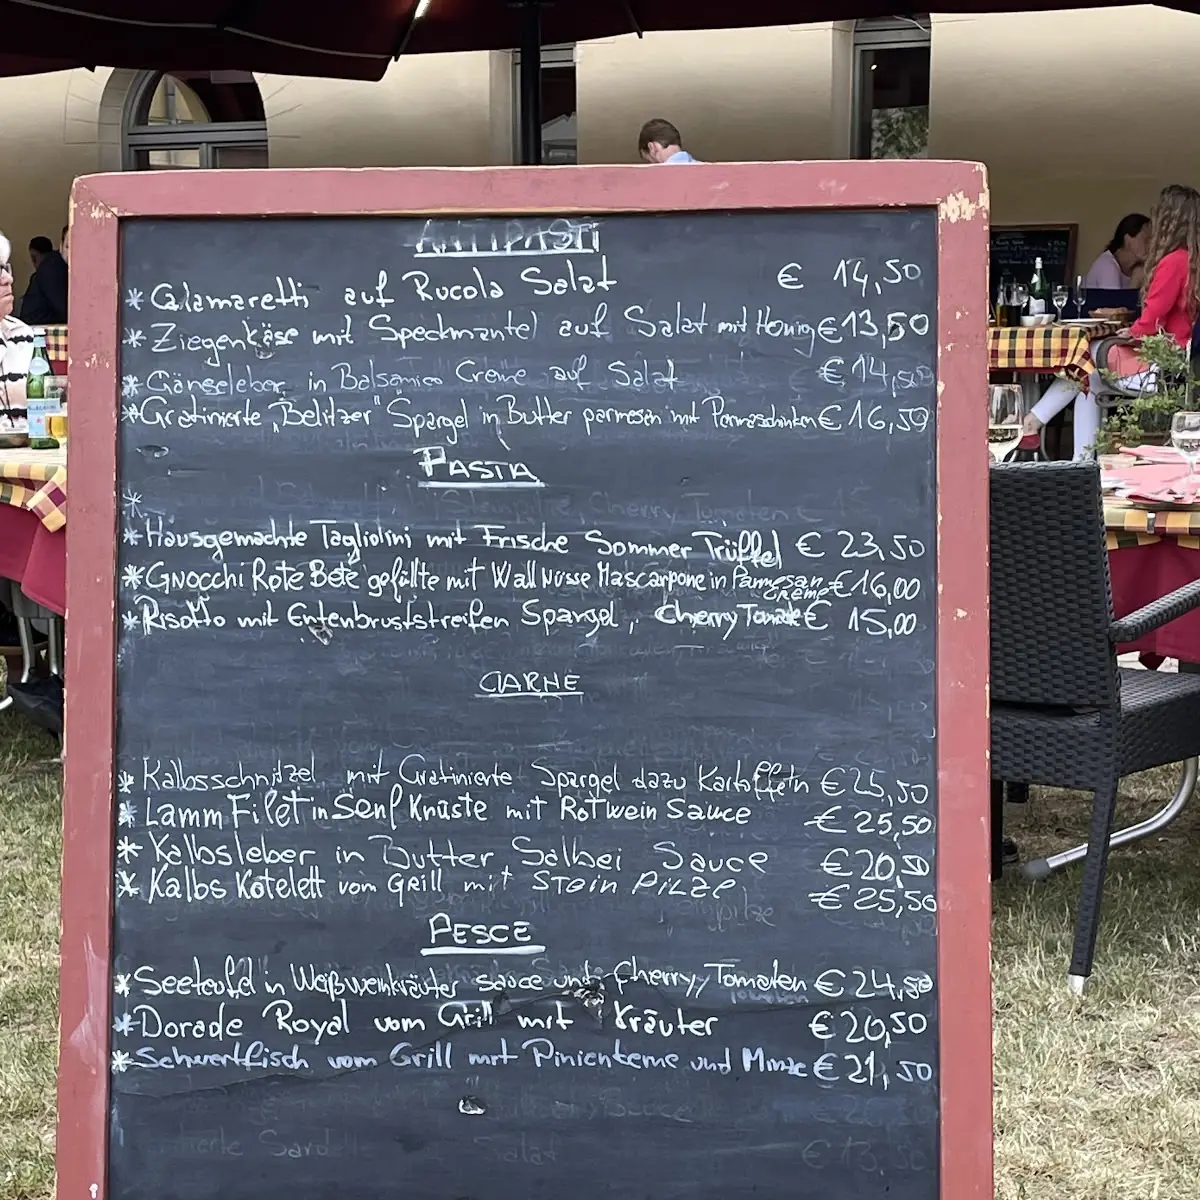 ANTIPASTI
* Calamaretti auf Rucola Salat € 14,50
* Ziegenkäse mit Speckmantel auf Salat mit Honig € 13,50
* Gänseleber in Balsamico Creme auf Salat € 14,50
* Gratinierte „Belitzer" Spargel in Butter parmesan mit Parmaschinken € 16,50
PASTA
*
* Hausgemachte Tagliolini mit Frische Sommer Trüffel € 23,50
* Gnocchi Rote Bete gefüllte mit Wall Nüsse Mascarpone in Parmesan Creme € 16,00
* Risotto mit Entenbruststreifen Spargel, Cherry Tomate € 15,00
CARNE
* Kalbsschnitzel mit Gratinierte Spargel dazu Kartoffeln € 25,50
* Lamm Filet in Senf Kruste mit Rotwein Sauce € 25,50
* Kalbsleber in Butter, Salbei Sauce € 20,50
* Kalbs Kotelett vom Grill mit STein PilZe € 25,50
PESCE
* Seeteufel in Weißweinkräuter sauce und Cherry, Tomaten € 24,50
* Dorade Royal vom Grill mit Kräuter € 20,50
* Schwertfisch vom Grill mit Pinienkerne und Minze € 21,50